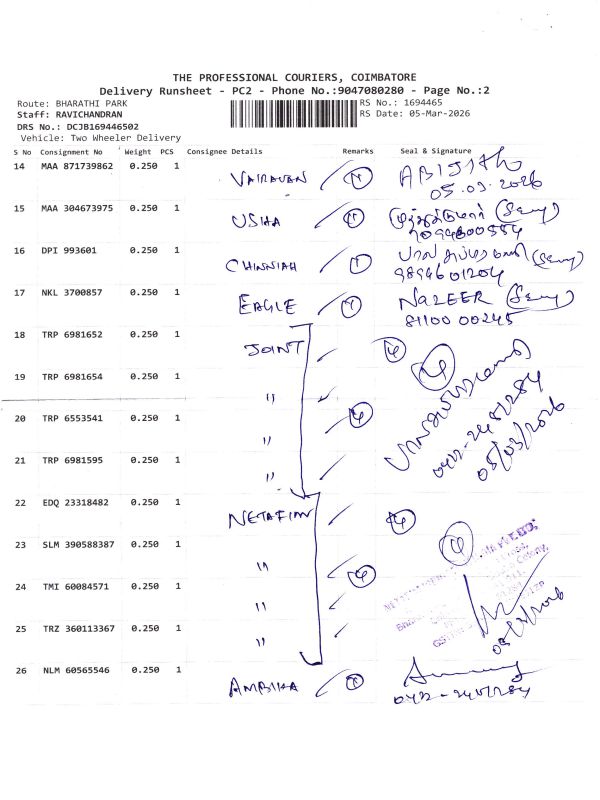 THE PROFESSIONAL COURIERS, COIMBATORE
Delivery Runsheet - PC2 - Phone No.:9047080280 - Page No.:2
Route: BHARATHI PARK
RS No.: 1694465
Staff: RAVICHANDRAN
RS Date: 05-Mar-2026
DRS No.: DCJB169446502
Vehicle: Two Wheeler Delivery
S No Consignment No Weight PCS Consignee Details Remarks Seal & Signature
14 MAA 871739862 0.250 1 VAIRAVAN 1 ABIJITH
05.03.2026
15 MAA 304673975 0.250 1 USHA 1
16 DPI 993601 0.250 1 CHINNIAH 1
9894601204
17 NKL 3700857 0.250 1 EAGLE 1 NAZEER
81100 00245
18 TRP 6981652 0.250 1 JOINT 4 4
19 TRP 6981654 0.250 1 "
20 TRP 6553541 0.250 1 " 4
0422-2451284
05/03/2026
21 TRP 6981595 0.250 1 "
22 EDQ 23318482 0.250 1 NETAFIM 4
23 SLM 390588387 0.250 1 " 4
24 TMI 60084571 0.250 1 " 4
25 TRZ 360113367 0.250 1 "
26 NLM 60565546 0.250 1 AMBIKA 1